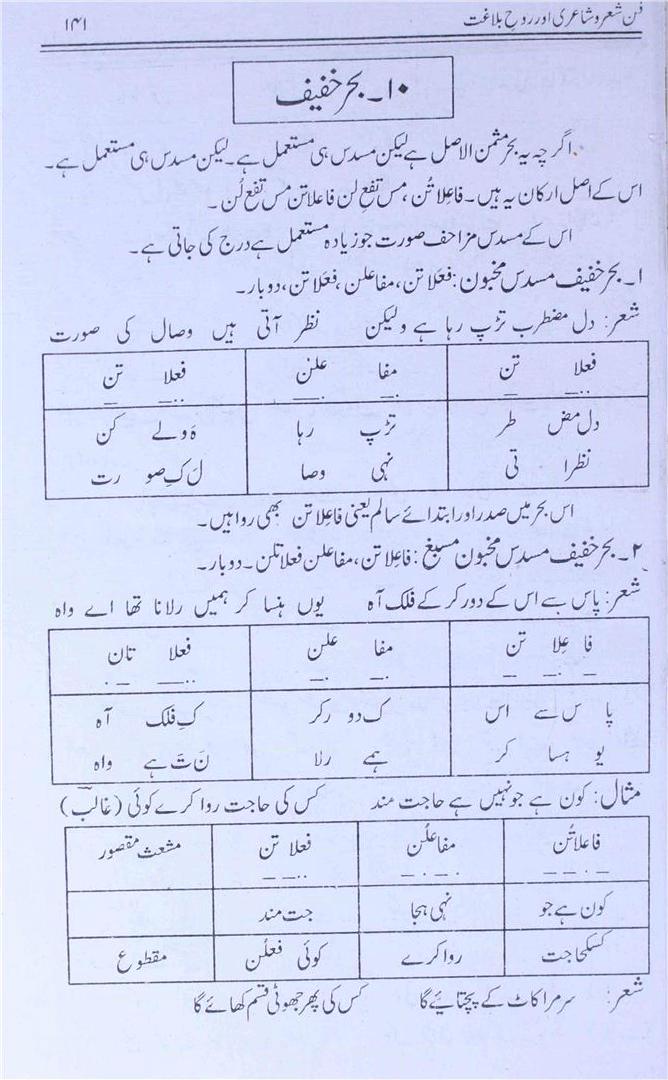 فن شعر و شاعری اور روح بلاغت ۱۴۱
۱۰۔ بحر خفیف
اگرچہ یہ بحر مثمن الاصل ہے لیکن مسدس ہی مستعمل ہے۔ لیکن مسدس ہی مستعمل ہے۔
اس کے اصل ارکان یہ ہیں۔ فاعِلاتُن، مس تفعِ لن فاعلاتن مس تفع لُن۔
اس کے مسدس مزاحف صورت جو زیادہ مستعمل ہے درج کی جاتی ہے۔
۱۔ بحر خفیف مسدس مخبون: فعَلاتن، مفاعلن، فعَلاتن، دوبار۔
شعر: دل مضطرب تڑپ رہا ہے ولیکن نظر آتی ہیں وصال کی صورت
فعلا تن مفا علن فعلا تن
دل مض طر تڑپ رہا ہَ ولے کن
نظرا تی نہی وصا لَ کِ صو رت
اس بحر میں صدر اور ابتدائے سالم یعنی فاعِلاتن بھی روا ہیں۔
۲۔ بحر خفیف مسدس مخبون مسبغ: فاعِلاتن، مفاعلن فعلاتلن۔ دوبار۔
شعر: پاس سے اس کے دور کر کے فلک آہ یوں ہنسا کر ہمیں رلانا تھا اے واہ
فا عِلا تن مفا علن فعلا تان
پا س سے اس ک دو رکر کِ فلک آہ
یو ہسا کر ہمے رلا نَ تَ ہے واہ
مثال: کون ہے جو نہیں ہے حاجت مند کس کی حاجت روا کرے کوئی (غالبؔ)
فاعلاتُن مفاعلُن فعلاتن مشعث مقصور
کون ہے جو نہی ہجا جت مند
کسکحاجت روا کرے کوئی فعلُن مقطوع
شعر: سر مرا کاٹ کے پچتائیے گا کس کی پھر جھوٹی قسم کھائے گا